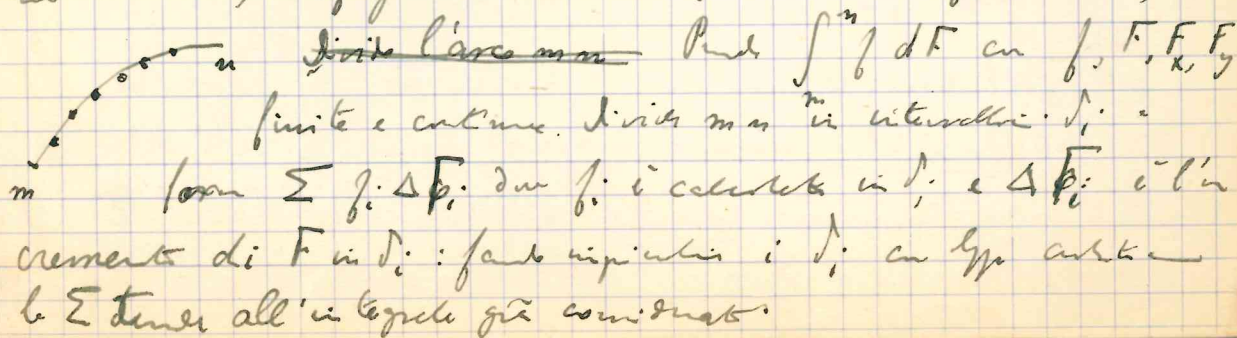 n Divido l'arco mn Prendo ∫ₘⁿ f dF con f, F, Fx, Fy
finite e continue. Divido mn in intervallini δi e
m formo Σ fi ΔFi dove fi è calcolata in δi e ΔFi è l'in
cremento di F in δi : facendo impiccolire i δi con legge
la Σ tende all'integrale già considerato.